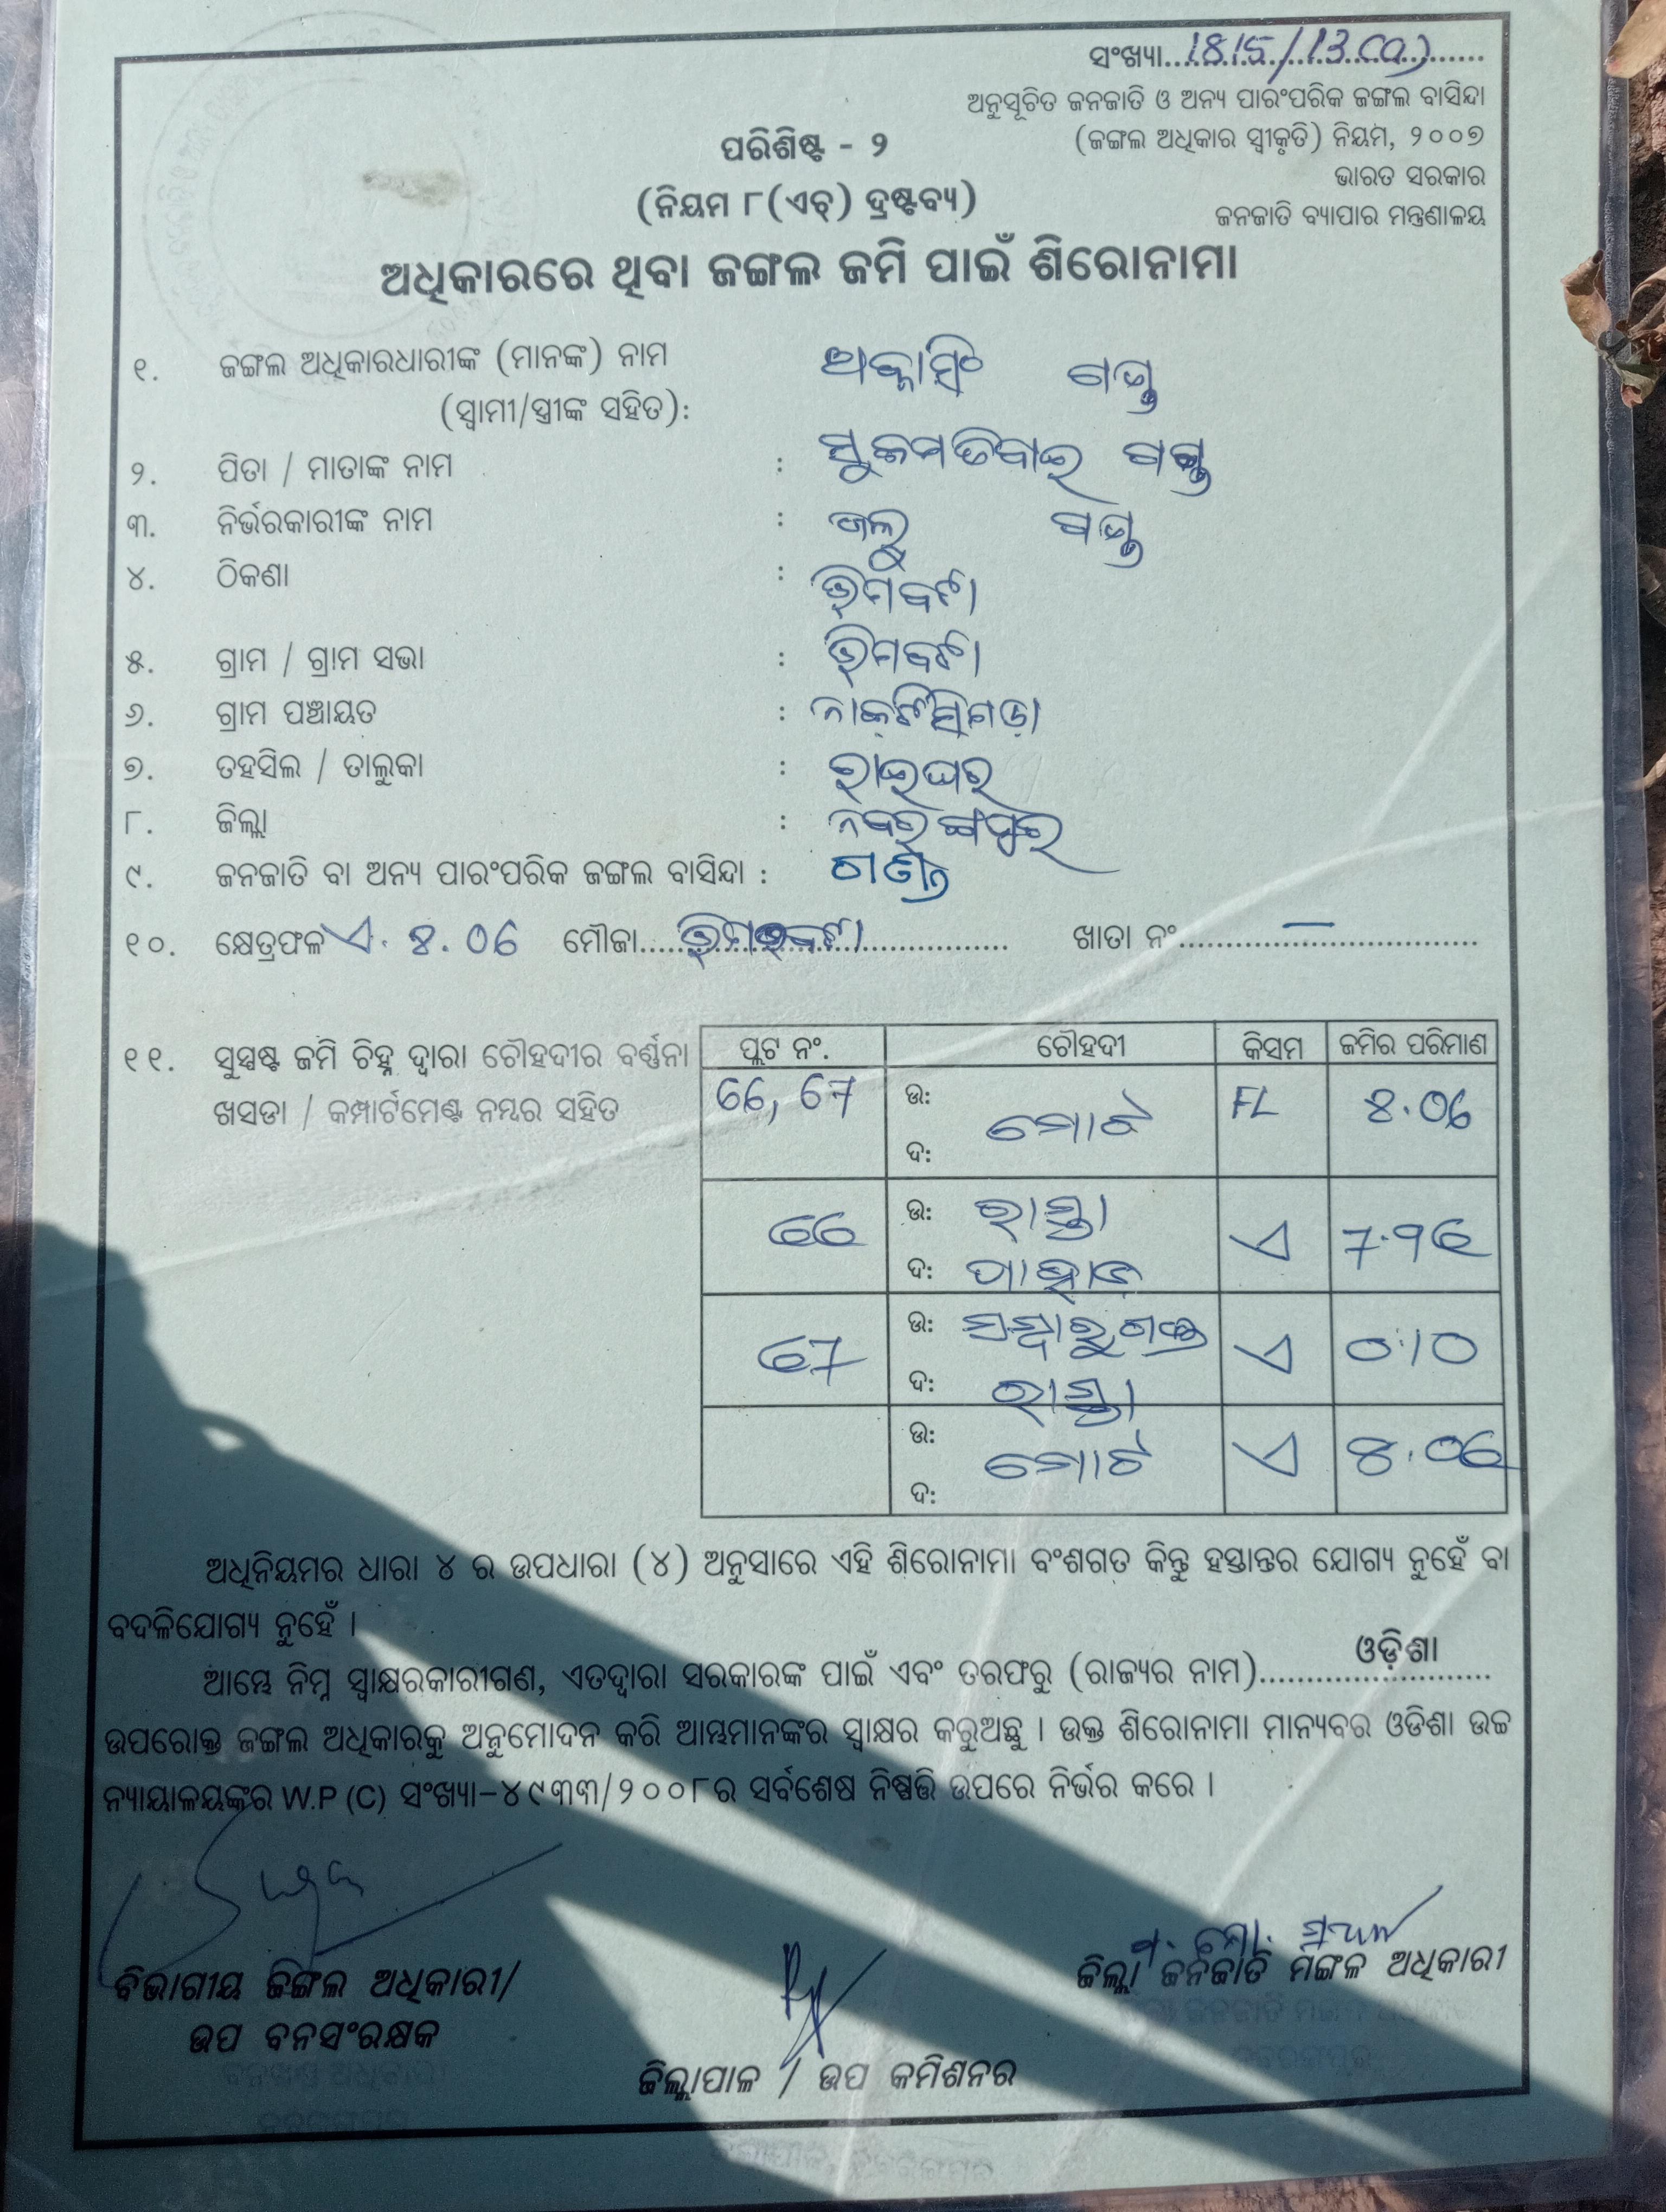 ସଂଖ୍ୟା 1815/13
ଅନୁସୂଚିତ ଜନଜାତି ଓ ଅନ୍ୟ ପାରଂପରିକ ଜଙ୍ଗଲ ବାସିନ୍ଦା
(ଜଙ୍ଗଲ ଅଧିକାର ସ୍ୱୀକୃତି) ନିୟମ, ୨୦୦୭
ଭାରତ ସରକାର
ଜନଜାତି ବ୍ୟାପାର ମନ୍ତ୍ରଣାଳୟ
ପରିଶିଷ୍ଟ - ୨
(ନିୟମ ୮(ଏଚ୍) ଦ୍ରଷ୍ଟବ୍ୟ)
ଅଧିକାରରେ ଥିବା ଜଙ୍ଗଲ ଜମି ପାଇଁ ଶିରୋନାମା
୧. ଜଙ୍ଗଲ ଅଧିକାରଧାରୀଙ୍କ (ମାନଙ୍କ) ନାମ ଗଣ୍ଡ
(ସ୍ୱାମୀ/ସ୍ତ୍ରୀଙ୍କ ସହିତ):
୨. ପିତା / ମାତାଙ୍କ ନାମ : ଗଣ୍ଡ
୩. ନିର୍ଭରକାରୀଙ୍କ ନାମ : ଗଣ୍ଡ
୪. ଠିକଣା :
୫. ଗ୍ରାମ / ଗ୍ରାମ ସଭା :
୬. ଗ୍ରାମ ପଞ୍ଚାୟତ :
୭. ତହସିଲ / ତାଲୁକା : ରାଇଘର
୮. ଜିଲ୍ଲା : ନବରଙ୍ଗପୁର
୯. ଜନଜାତି ବା ଅନ୍ୟ ପାରଂପରିକ ଜଙ୍ଗଲ ବାସିନ୍ଦା : ଗଣ୍ଡ
୧୦. କ୍ଷେତ୍ରଫଳ ଏ. 8.06 ମୌଜା ଖାତା ନଂ. —
୧୧. ସୁସ୍ପଷ୍ଟ ଜମି ଚିହ୍ନ ଦ୍ୱାରା ଚୌହଦୀର ବର୍ଣ୍ଣନା
ଖସଡା / କମ୍ପାର୍ଟମେଣ୍ଟ ନମ୍ବର ସହିତ
ପ୍ଲଟ ନଂ. ଚୌହଦୀ କିସମ ଜମିର ପରିମାଣ
66, 67 ଉ: ମୋଟ FL 8.06
ଦ:
66 ଉ: ରାସ୍ତା ଏ 7.96
ଦ: ପାହାଡ଼
67 ଉ: ଏ 0.10
ଦ: ରାସ୍ତା
ଉ: ମୋଟ ଏ 8.06
ଦ:
ଅଧିନିୟମର ଧାରା ୪ ର ଉପଧାରା (୪) ଅନୁସାରେ ଏହି ଶିରୋନାମା ବଂଶଗତ କିନ୍ତୁ ହସ୍ତାନ୍ତର ଯୋଗ୍ୟ ନୁହେଁ ବା
ବଦଳିଯୋଗ୍ୟ ନୁହେଁ ।
ଆମ୍ଭେ ନିମ୍ନ ସ୍ୱାକ୍ଷରକାରୀଗଣ, ଏତଦ୍ୱାରା ସରକାରଙ୍କ ପାଇଁ ଏବଂ ତରଫରୁ (ରାଜ୍ୟର ନାମ) ଓଡ଼ିଶା
ଉପରୋକ୍ତ ଜଙ୍ଗଲ ଅଧିକାରକୁ ଅନୁମୋଦନ କରି ଆମ୍ଭମାନଙ୍କର ସ୍ୱାକ୍ଷର କରୁଅଛୁ । ଉକ୍ତ ଶିରୋନାମା ମାନ୍ୟବର ଓଡିଶା ଉଚ୍ଚ
ନ୍ୟାୟାଳୟଙ୍କର W.P (C) ସଂଖ୍ୟା-୪୯୩୩/୨୦୦୮ର ସର୍ବଶେଷ ନିଷ୍ପତ୍ତି ଉପରେ ନିର୍ଭର କରେ ।
ବିଭାଗୀୟ ଜଙ୍ଗଲ ଅଧିକାରୀ/
ଉପ ବନସଂରକ୍ଷକ
ଜିଲ୍ଲାପାଳ / ଉପ କମିଶନର
ଜିଲ୍ଲା ଜନଜାତି ମଙ୍ଗଳ ଅଧିକାରୀ